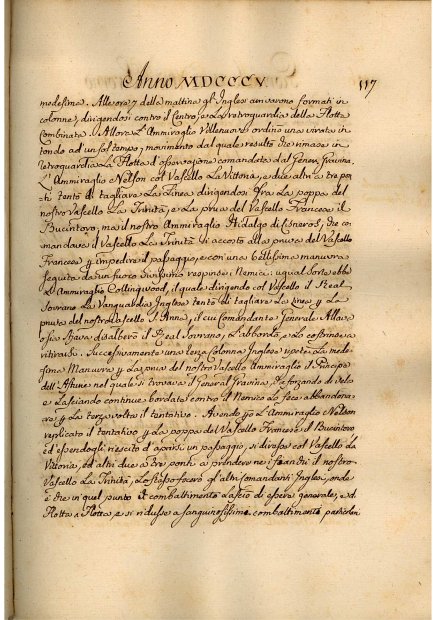 Anno MDCCCV.
117
medesima. Alle ore 7 della mattina gl'Inglesi arrivarono formati in
colonne, dirigendosi contro il Centro, e la retroguardia della Flotta
Combinata. Allora L'Ammiraglio Villenuove ordinò una virata in
tondo ad un sol tempo, movimento dal quale resultò che rimase in
retroguardia La Flotta d'osservazione comandata dal General Gravina.
L'Ammiraglio Nelson col Vascello La Vittoria, e due altri a tre pon-
ti tentò di tagliare La Linea dirigendosi fra La poppa del
nostro Vascello La Trinità, e La prua del Vascello Francese il
Bucintoro, ma il nostro Ammiraglio Hidalgo di Cisneros, che co-
mandava il Vascello La Trinità si accostò alla prua del Vascello
Francese p impedire il passaggio, e con una bellissima manuvra
seguita da un fuoco vivissimo respinse i Nemici: ugual sorte ebbe
L'Ammiraglio Collingwood, il quale dirigendo col Vascello il Real
Sovrano La Vanguardia Inglese tentò di tagliare La Linea p La
prua del nostro Vascello S. Anna, il cui Comandante Generale Alava
o sia Ihave disalberò il Real Sovrano, L'abbordò, e Lo costrinse a
ritirarsi. Successivamente una terza Colonna Inglese ripetè La mede-
sima Manuvra p La prua del nostro Vascello Ammiraglio il Principe
dell'Asturie nel quale si trovava il General Gravina, che forzando di vele
e Lasciando continue bordate contro il Nemico Lo fece abbandona-
re p La terza volta il tentativo. Avendo poi L'Ammiraglio Nelson
replicato il tentativo p La poppa del Vascello Francese il Bucintoro
ed essendogli riescito d'aprirsi un passaggio, si diresse col Vascello La
Vittoria, ed altri due a tre ponti a prendere nei fianchi il nostro
Vascello La Trinità, Lo stesso fecero gli altri Comandanti Inglesi, onde
è che in quel punto il combattimento Lasciò di essere generale, e di
Flotta a Flotta, e si ridusse a sanguinosissimi combattimenti particolari